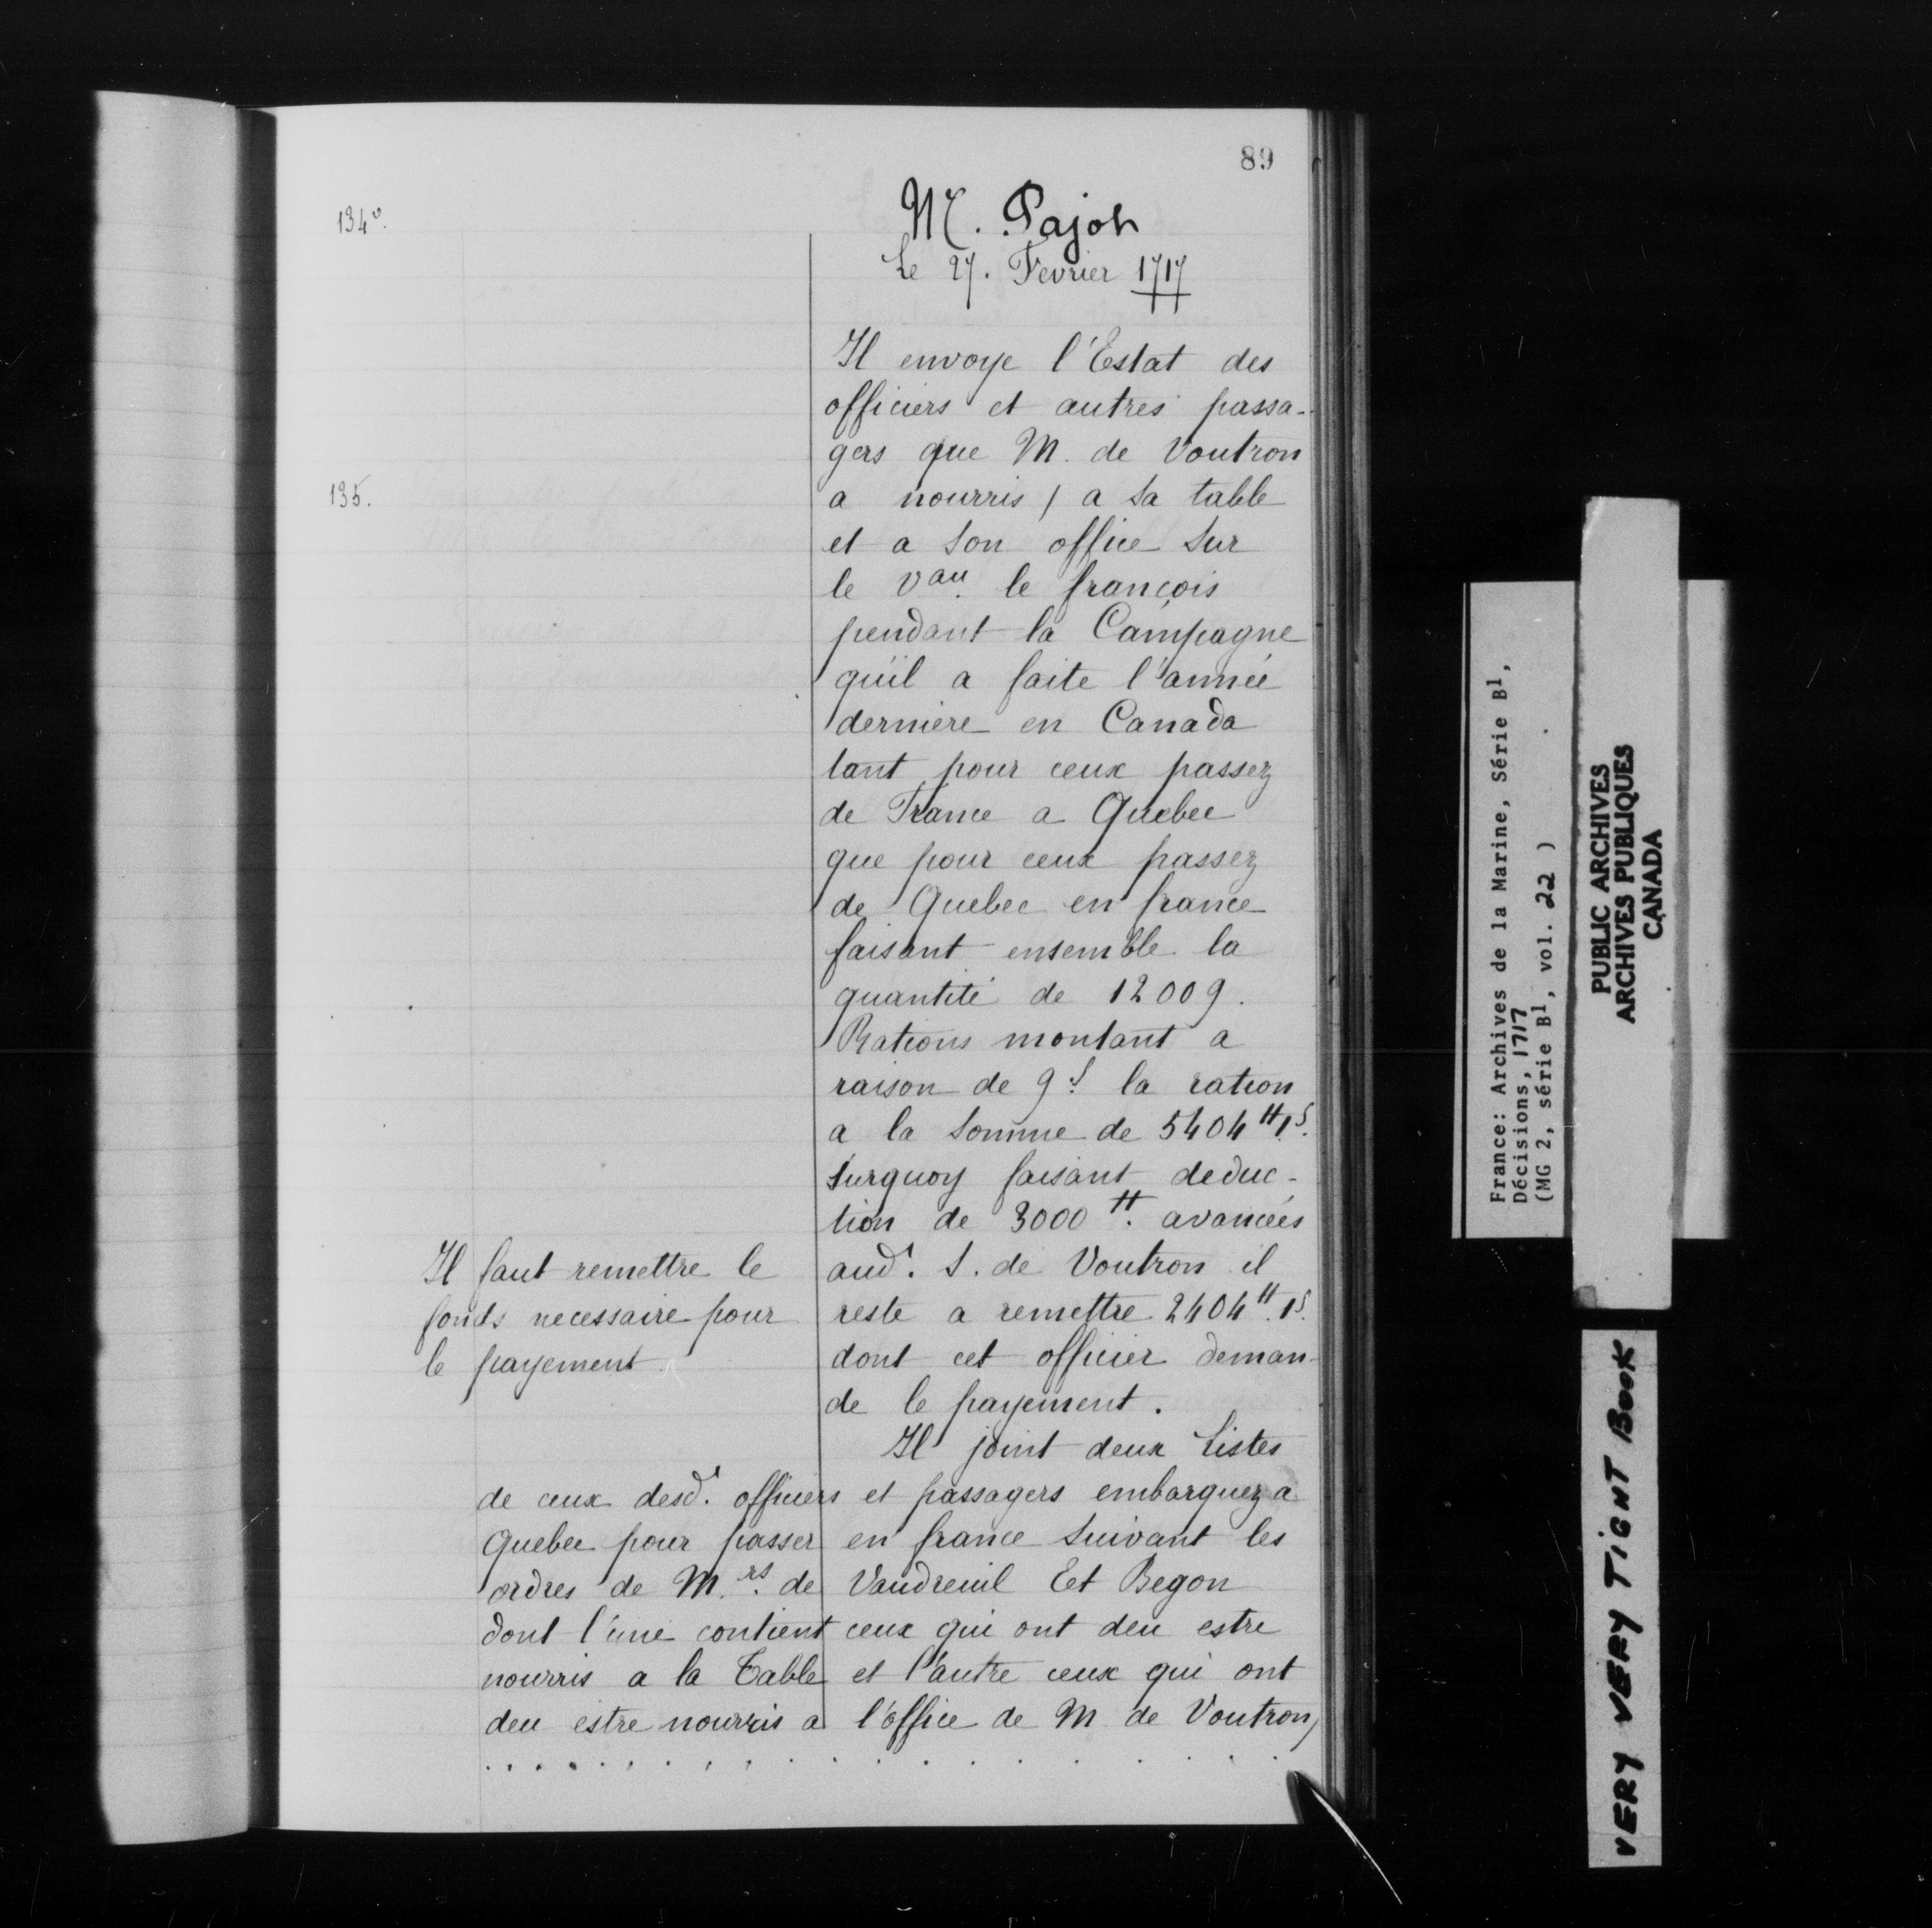 89
134vo.
M. Pajot
Le 27. Fevrier 1717
Il envoye l'Estat des
officiers et autres passa-
gers que M. de Voutron
135.
a nourris / a sa table
et a son office sur
le Vau. le françois
pendant la Campagne
qu'il a faite l'année
derniere en Canada
tant pour ceux passez
de France a Quebec
que pour ceux passez
de Quebec en france
faisant ensemble la
quantité de 12009.
Rations montant a
raison de 9s. la ration
a la somme de 5404tt. 1s.
surquoy faisant deduc-
tion de 3000tt. avancées
aud. S. de Voutron il
reste a remettre 2404tt. 1s.
dont cet officier deman-
de le payement.
Il faut remettre le
fonds necessaire pour
le payement
Il joint deux Listes
de ceux desd. officiers et passagers embarquez a
Quebec pour passer en france suivant les
ordres de M.rs de Vaudreuil Et Begon
dont l'une contient ceux qui ont deu estre
nourris a la Table et l'autre ceux qui ont
deu estre nourris a l'office de M de Voutron,
. . . . . . . . . . . . . . . . . .
France: Archives de la Marine, Série B1,
Décisions, 1717
(MG 2, série B1, vol. 22 )
PUBLIC ARCHIVES
ARCHIVES PUBLIQUES
CANADA
VERY VERY TIGHT BOOK